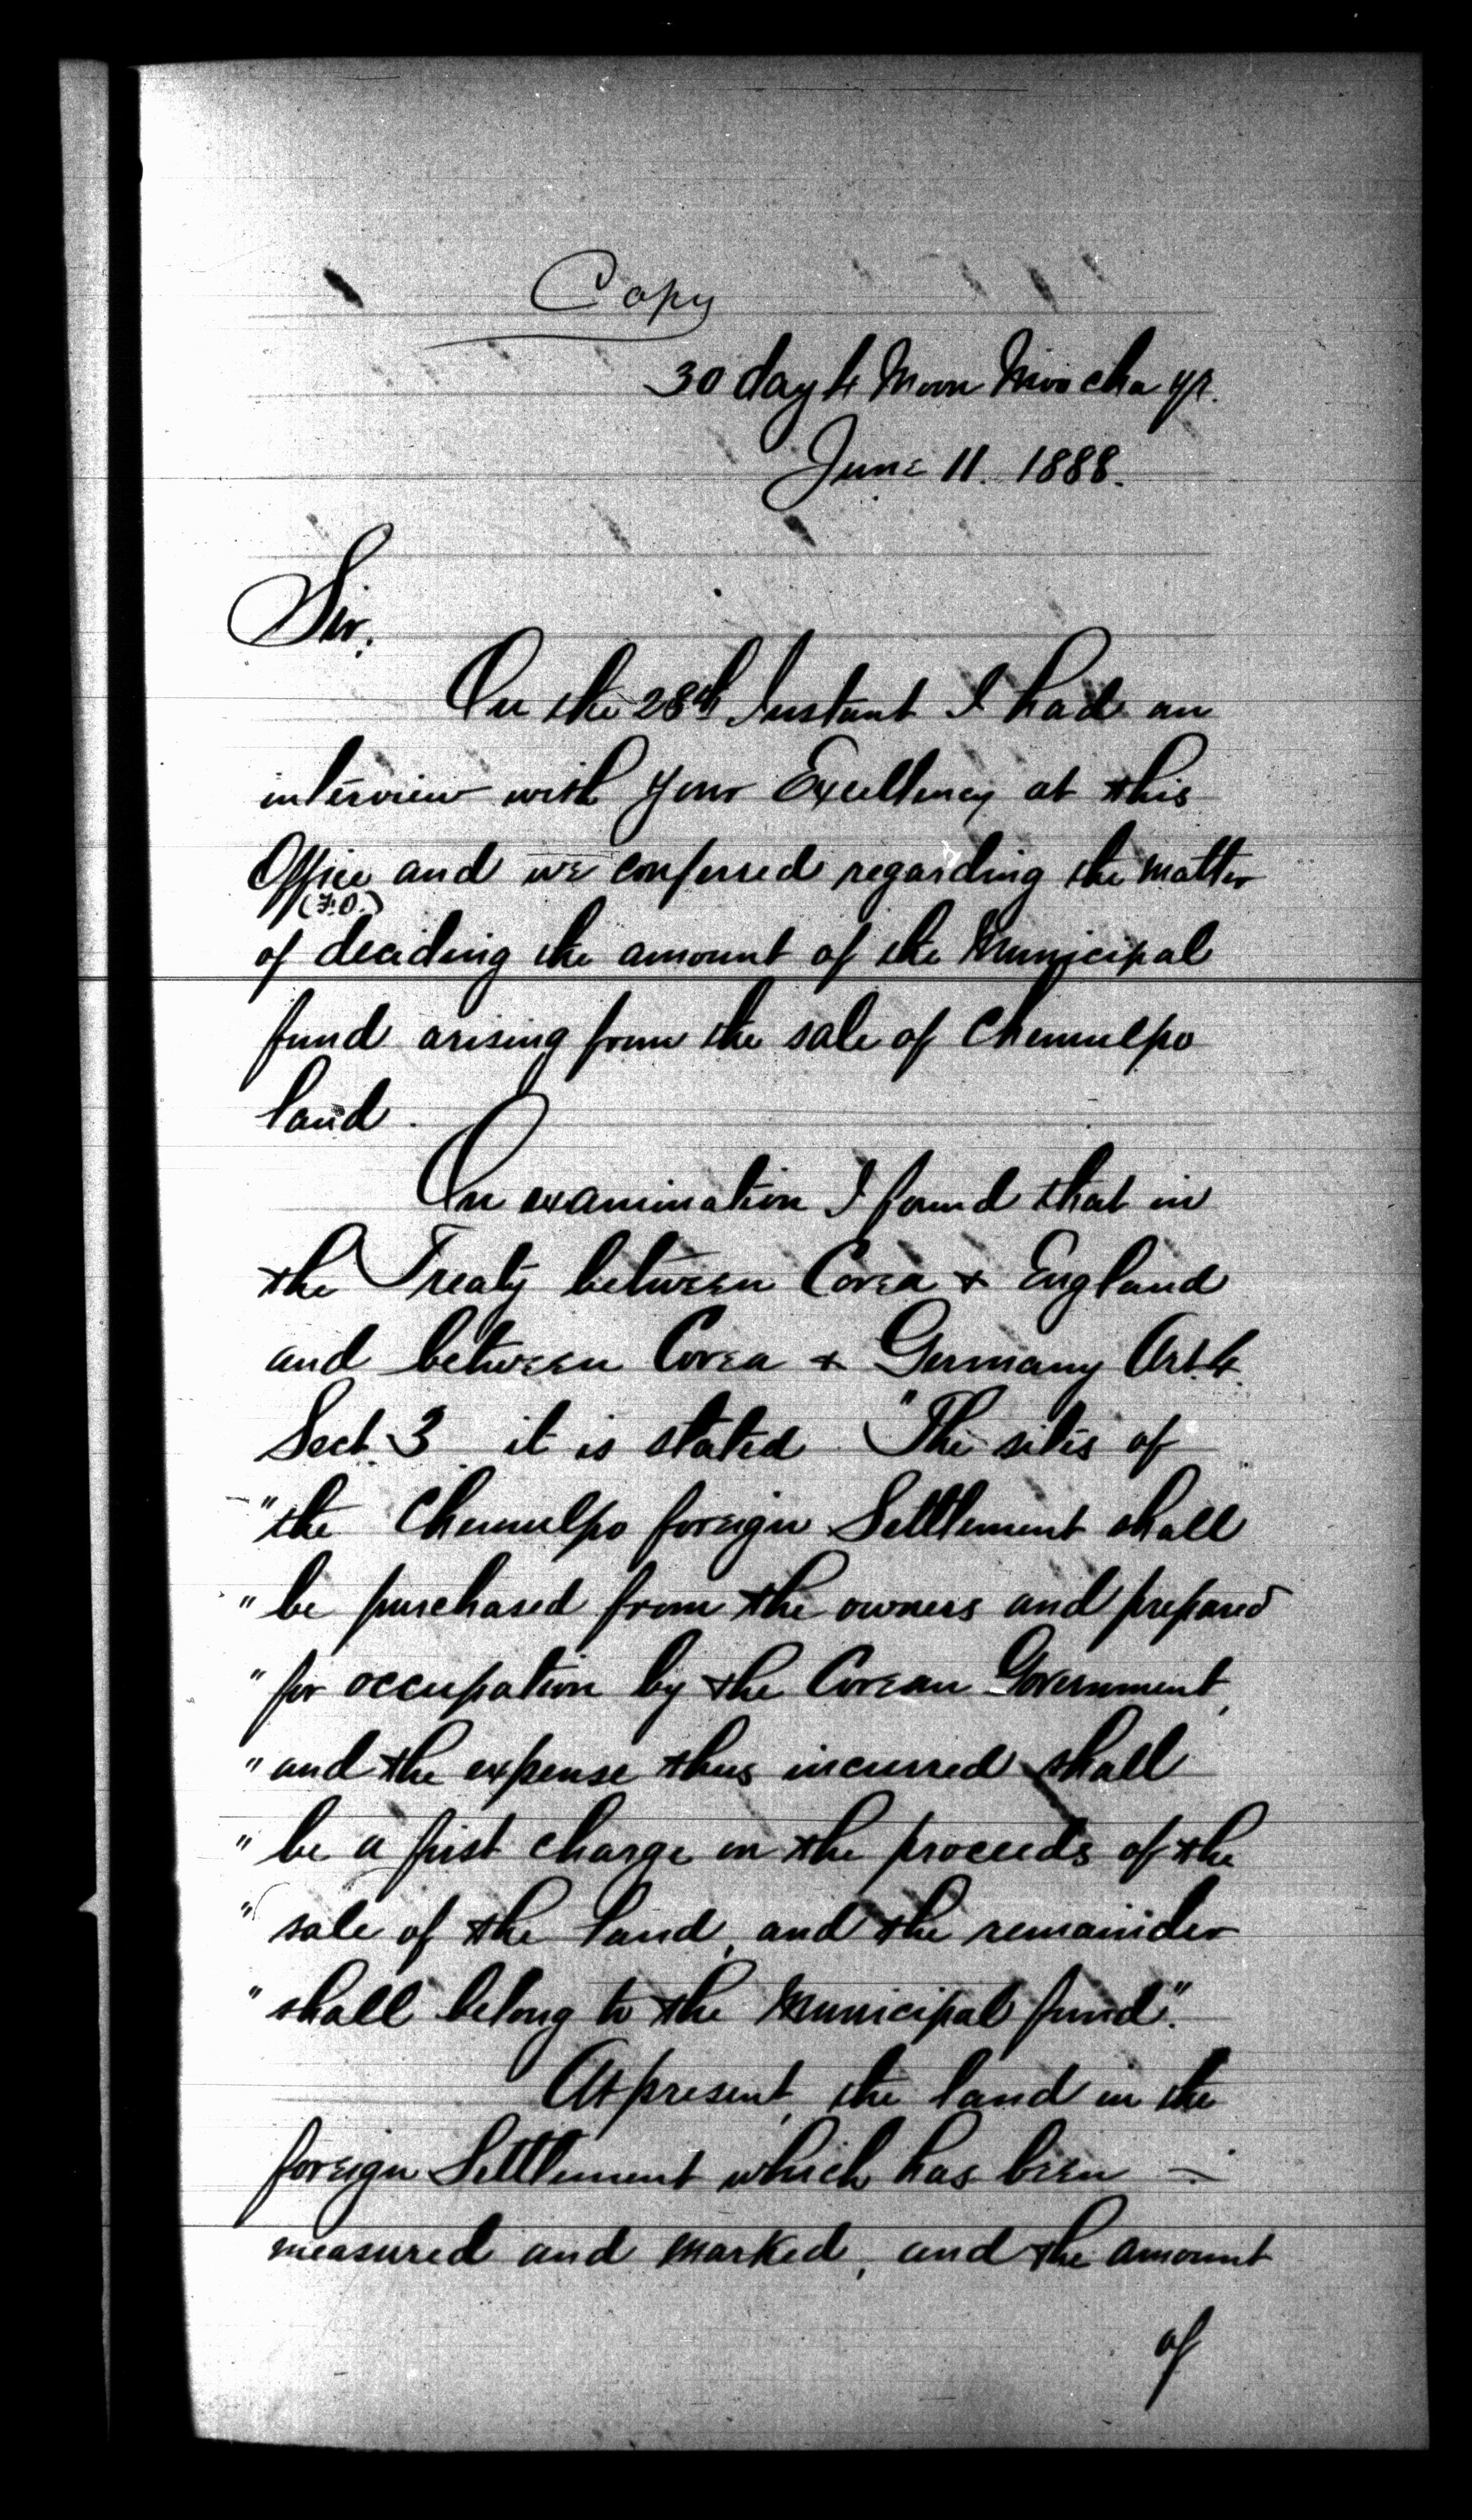 Copy
30 day 4 Moon Moo cha yr.
June 11. 1888.
Sir:
On the 28th Instant I had an
interview with your Excellency at this
Office and we conferred regarding the matter
(F.O.)
of deciding the amount of the Municipal
fund arising from the sale of Chemulpo
land.
On examination I found that in
the Treaty between Corea & England
and between Corea & Germany Art. 4.
Sect. 3 it is stated "The sites of
"the Chemulpo foreign Settlement shall
"be purchased from the owners and prepared
"for occupation by the Corean Government,
"and the expense thus incurred shall
"be a first charge on the proceeds of the
"sale of the land, and the remainder
"shall belong to the Municipal fund".
At present, the land in the
foreign Settlement which has been —
measured and marked, and the amount
of